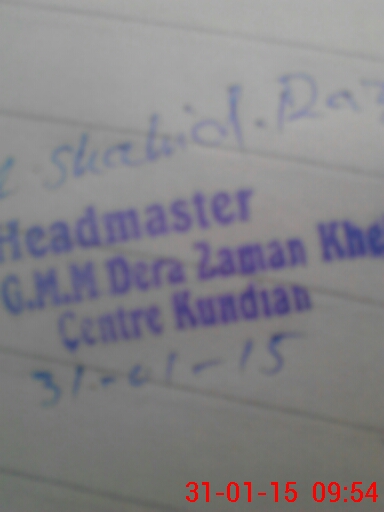 Shahid. Raz
Headmaster
G.M.M Dera Zaman Khe
Centre Kundian
31-01-15
31-01-15 09:54